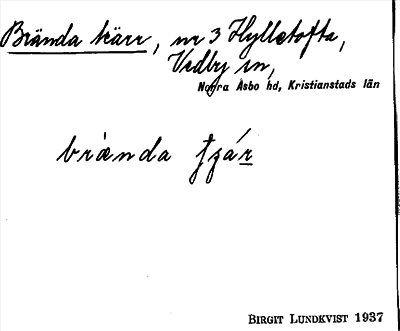 Brända kärr, nr 3 Hylletofta,
Vedby sn,
Norra Åsbo hd, Kristianstads län
brænda
BIRGIT LUNDKVIST 1937